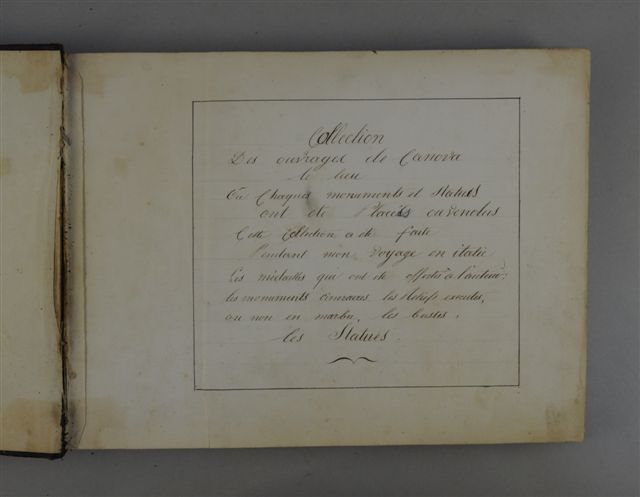 Collection
Des ouvrages de Canova
le lieu
Ou Chaques monuments et Statues
ont de Placées ou
Cette Collection a de faite
Pendant mon voyage en italie
Les médailles qui ont de offertes à l'auteur.
les monuments les Reliefs
ou non en marbre, les bustes,
les Statues.